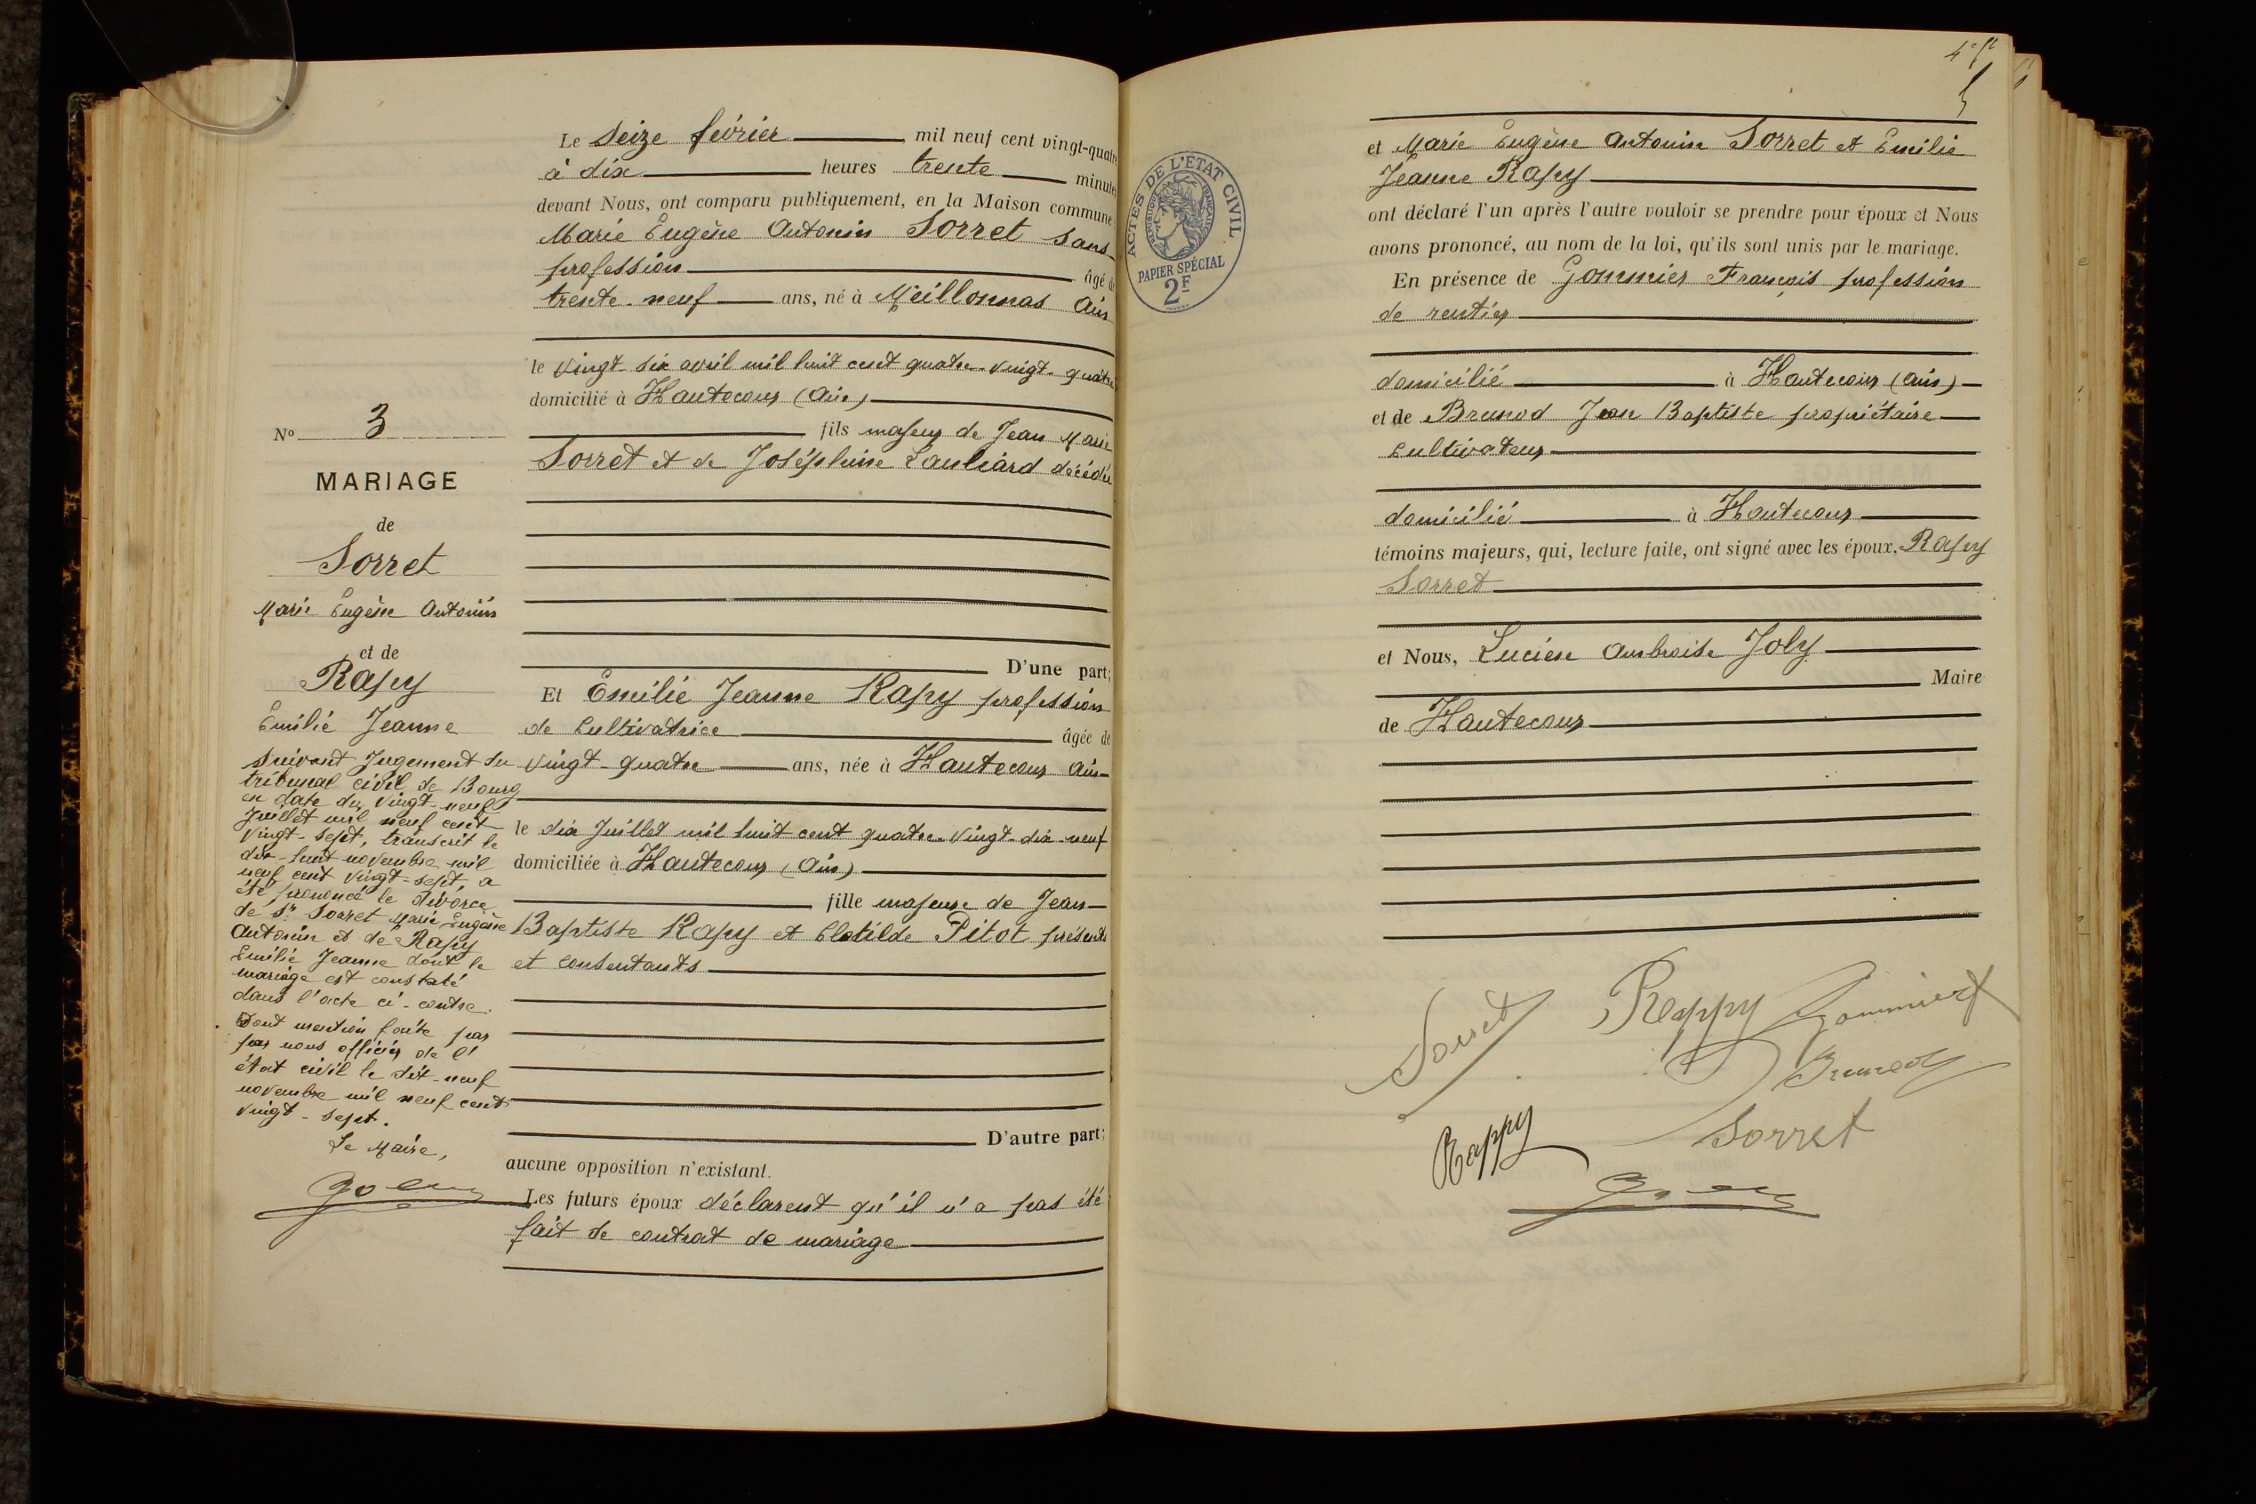 Le Seize février mil neuf cent vingt-quatre
à dix heures trente minutes
devant Nous, ont comparu publiquement, en la Maison commune
Marie Eugène Antonin Sorret sans
profession âgé de
trente-neuf ans, né à Meillonnas Ain
le vingt-six avril mil huit cent quatre-vingt-quatre
domicilié à Hautecour (Ain)
fils majeur de Jean Marie
Sorret et de Joséphine décédée
D'une part;
Et Emilie Jeanne Rapy profession
de cultivatrice âgée de
vingt-quatre ans, née à Hautecour Ain
le dix Juillet mil huit cent quatre-vingt-dix-neuf
domiciliée à Hautecour (Ain)
fille majeure de Jean
Baptiste Rapy et Clotilde Pitot présents
et consentants
D'autre part;
aucune opposition n'existant.
Les futurs époux déclarent qu'il n'a pas été
fait de contrat de mariage
No 3
MARIAGE
de
Sorret
Marie Eugène Antonin
et de
Rapy
Emilie Jeanne
Suivant Jugement du
tribunal civil de Bourg
en date du vingt-neuf
Juillet mil neuf cent
vingt-sept, transcrit le
dix-huit novembre mil
neuf cent vingt-sept, a
été prononcé le divorce
de Sr Sorret Marie Eugène
Antonin et de Rapy
Emilie Jeanne dont le
mariage est constaté
dans l'acte ci-contre.
Dont mention faite par
par nous officier de l'
état civil le dix-neuf
novembre mil neuf cent
vingt-sept.
Le Maire,
ACTES DE L'ETAT CIVIL
REPUBLIQUE FRANÇAISE
PAPIER SPÉCIAL
2F
et Marie Eugène Antonin Sorret et Emilie
Jeanne Rapy
ont déclaré l'un après l'autre vouloir se prendre pour époux et Nous
avons prononcé, au nom de la loi, qu'ils sont unis par le mariage.
En présence de Gommier François profession
de rentier
domicilié à Hautecour (Ain)
et de Brunod Jean Baptiste propriétaire
cultivateur
domicilié à Hautecour
témoins majeurs, qui, lecture faite, ont signé avec les époux, Rapy
Sorret
et Nous, Lucien Ambroise Joly
Maire
de Hautecour
Sorret Rappy Gommier
Brunod
Rappy Sorret